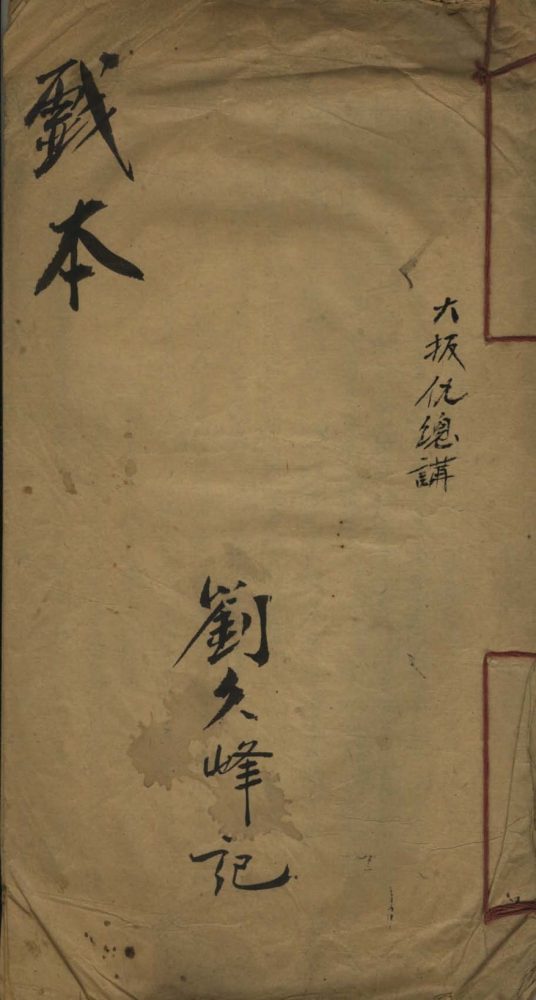 大扳仇總講
劉久峰記
戲本